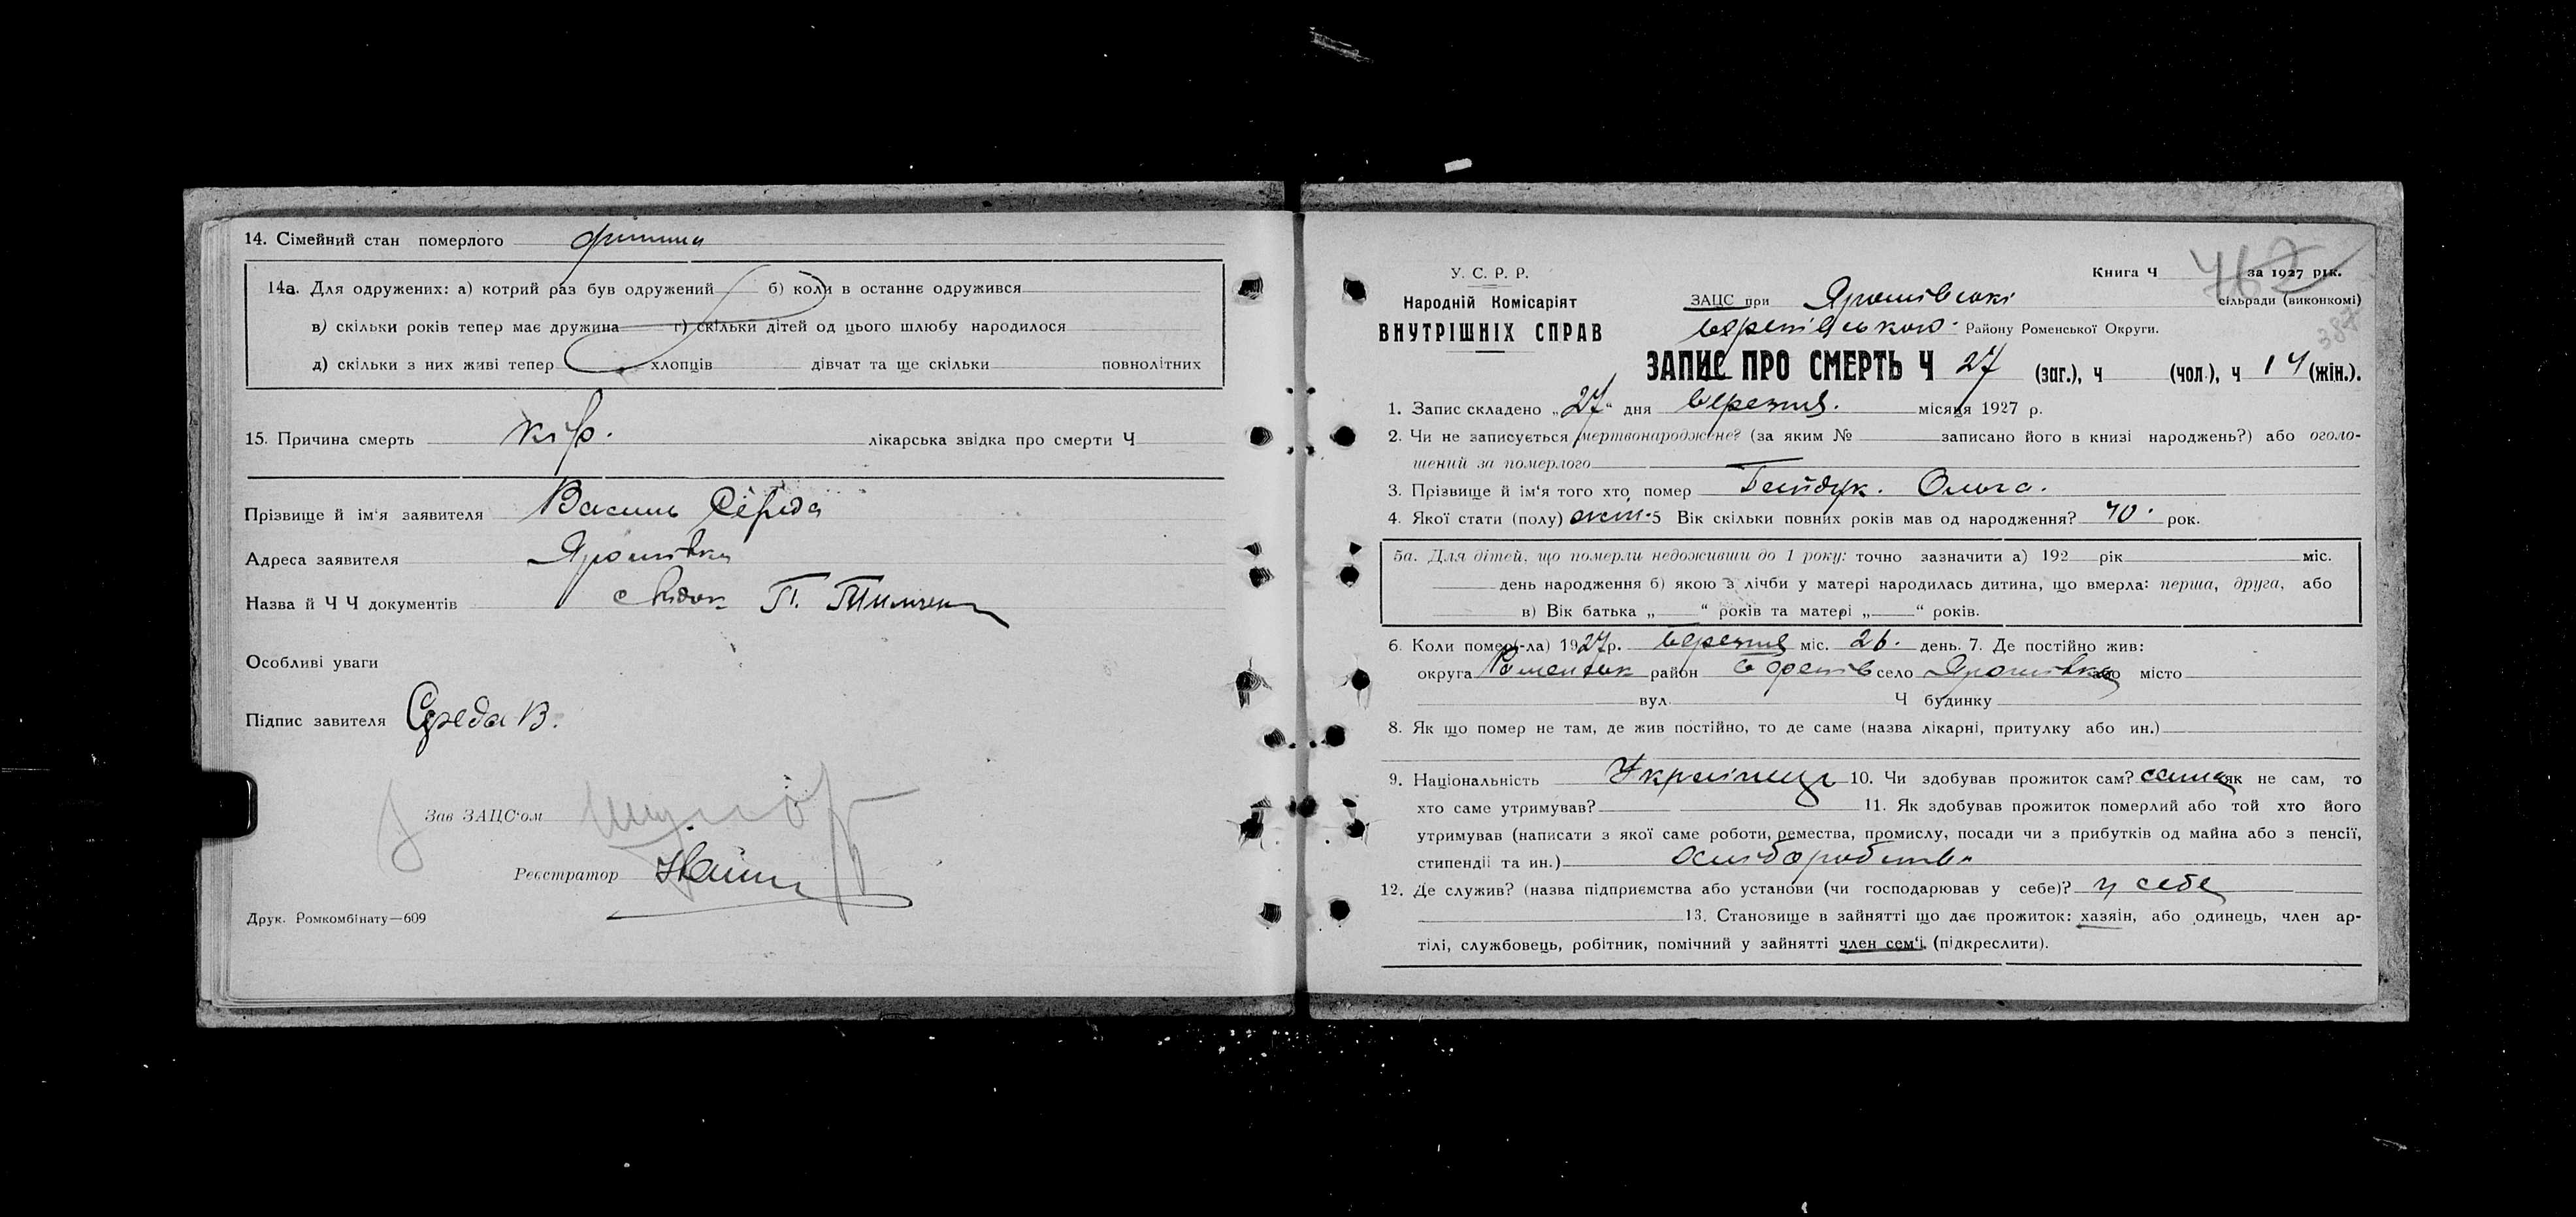 14. Сімейний стан померлого
14а. Для одружених: а) котрий раз був одружений б) коли в останнє одружився
в) скільки років тепер має дружина г) скільки дітей од цього шлюбу народилося
д) скільки з них живі тепер хлопців дівчат та ще скільки повнолітних
15. Причина смерть кір. лікарська звідка про смерти Ч
Прізвище й ім'я заявителя Василь Середа
Адреса заявителя Ярошівка
Назва й Ч Ч документів свідок П.
Особливі уваги
Підпис завителя Середа В.
Зав ЗАЦС'ом
Реєстратор
Друк. Ромкомбінату—609
У. С. Р. Р.
Народній Комісаріят
ВНУТРІШНІХ СПРАВ
Книга Ч за 1927 рік.
387
ЗАЦС при Ярошівські сільради (виконкомі)
Району Роменської Округи.
ЗАПИС ПРО СМЕРТЬ Ч 27 (заг.), ч (чол.), ч 14 (жін.).
1. Запис складено „27" дня березня. місяця 1927 р.
2. Чи не записується мертвонароджене? (за яким № записано його в книзі народжень?) або оголо-
шений за померлого
3. Прізвище й ім'я того хто помер Ольга.
4. Якої стати (полу) жін. 5 Вік скільки повних років мав од народження? 40. рок.
5а. Для дітей, що померли недоживши до 1 року: точно зазначити а) 192 рік міс.
день народження б) якою з лічби у матері народилась дитина, що вмерла: перша, друга, або
в) Вік батька „ “ років та матері „ “ років.
6. Коли помер(-ла) 1927р. березня міс. 26. день. 7. Де постійно жив:
округа район село Ярошівка або місто
вул. Ч будинку
8. Як що помер не там, де жив постійно, то де саме (назва лікарні, притулку або ин.)
9. Національність Українець 10. Чи здобував прожиток сам? сама як не сам, то
хто саме утримував? 11. Як здобував прожиток померлий або той хто його
утримував (написати з якої саме роботи, ремества, промислу, посади чи з прибутків од майна або з пенсії,
стипендії та ин.)
12. Де служив? (назва підприємства або установи (чи господарював у себе)? у себе
13. Становище в зайнятті що дає прожиток: хазяїн, або одинець, член ар-
тілі, службовець, робітник, помічний у зайнятті член сем'ї (підкреслити).